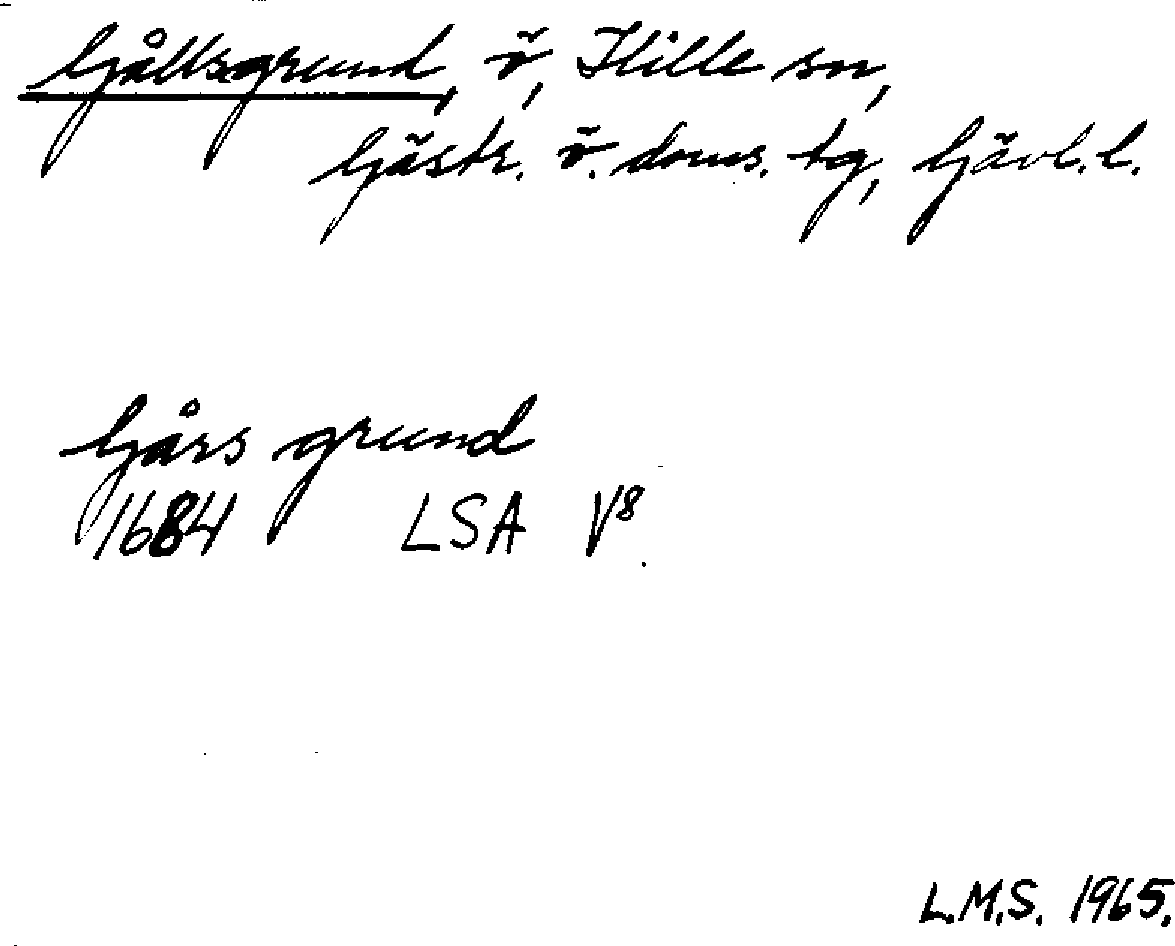 Gållsgrund, ö, Hille sn,
Gästr. ö. doms. tg, Gävl. l.
Gårs grund
1684 LSA V8
L.M.S. 1965.